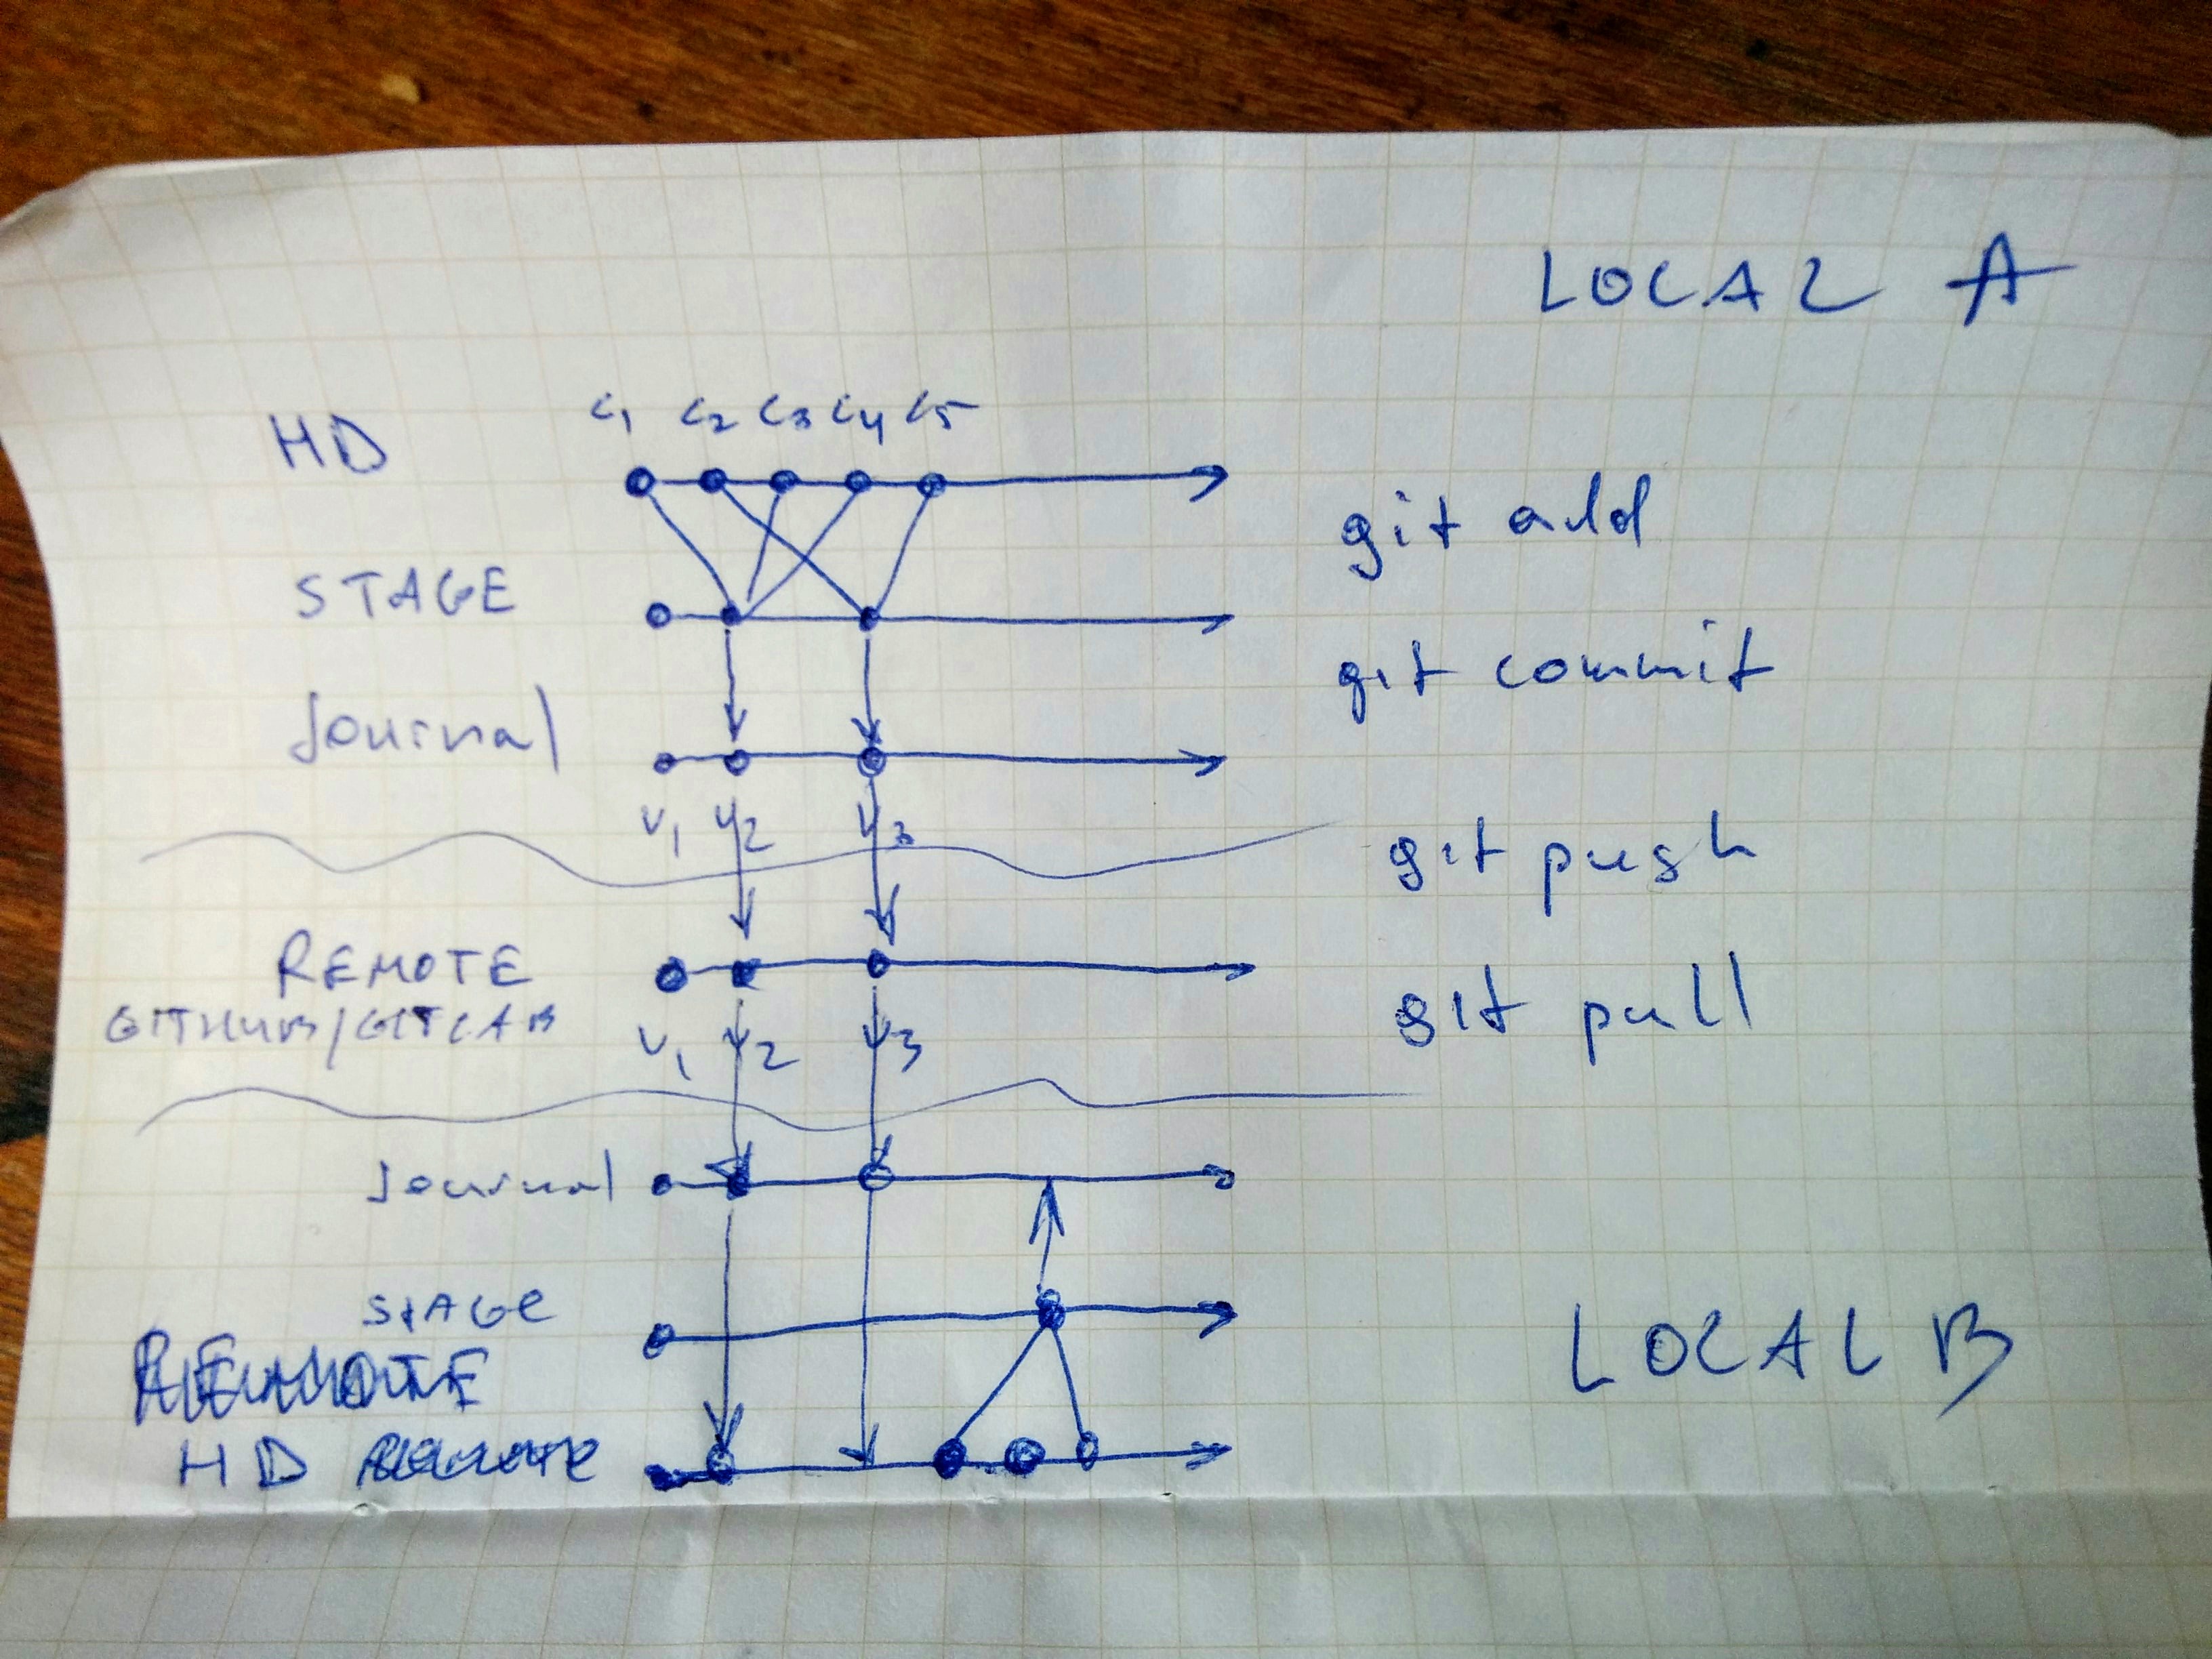 LOCAL A
HD c1 c2 c3 c4 c5
git add
STAGE
git commit
Journal
v1 v2 v3
git push
REMOTE
GITHUB/GITLAB
git pull
v1 v2 v3
Journal
STAGe
LOCAL B
REMOTE
HD